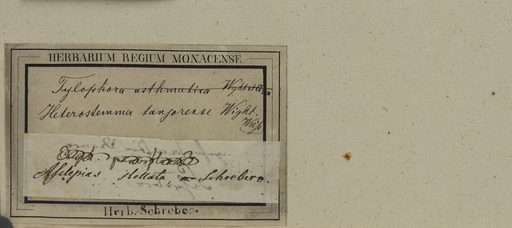 HERBARIUM REGIUM MONACENSE.
Tylophora asthmatica Wight et Arn.
Heterostemma tanjorense Wight.
Asclepias stellata Schreber.
Herb. Schreber.